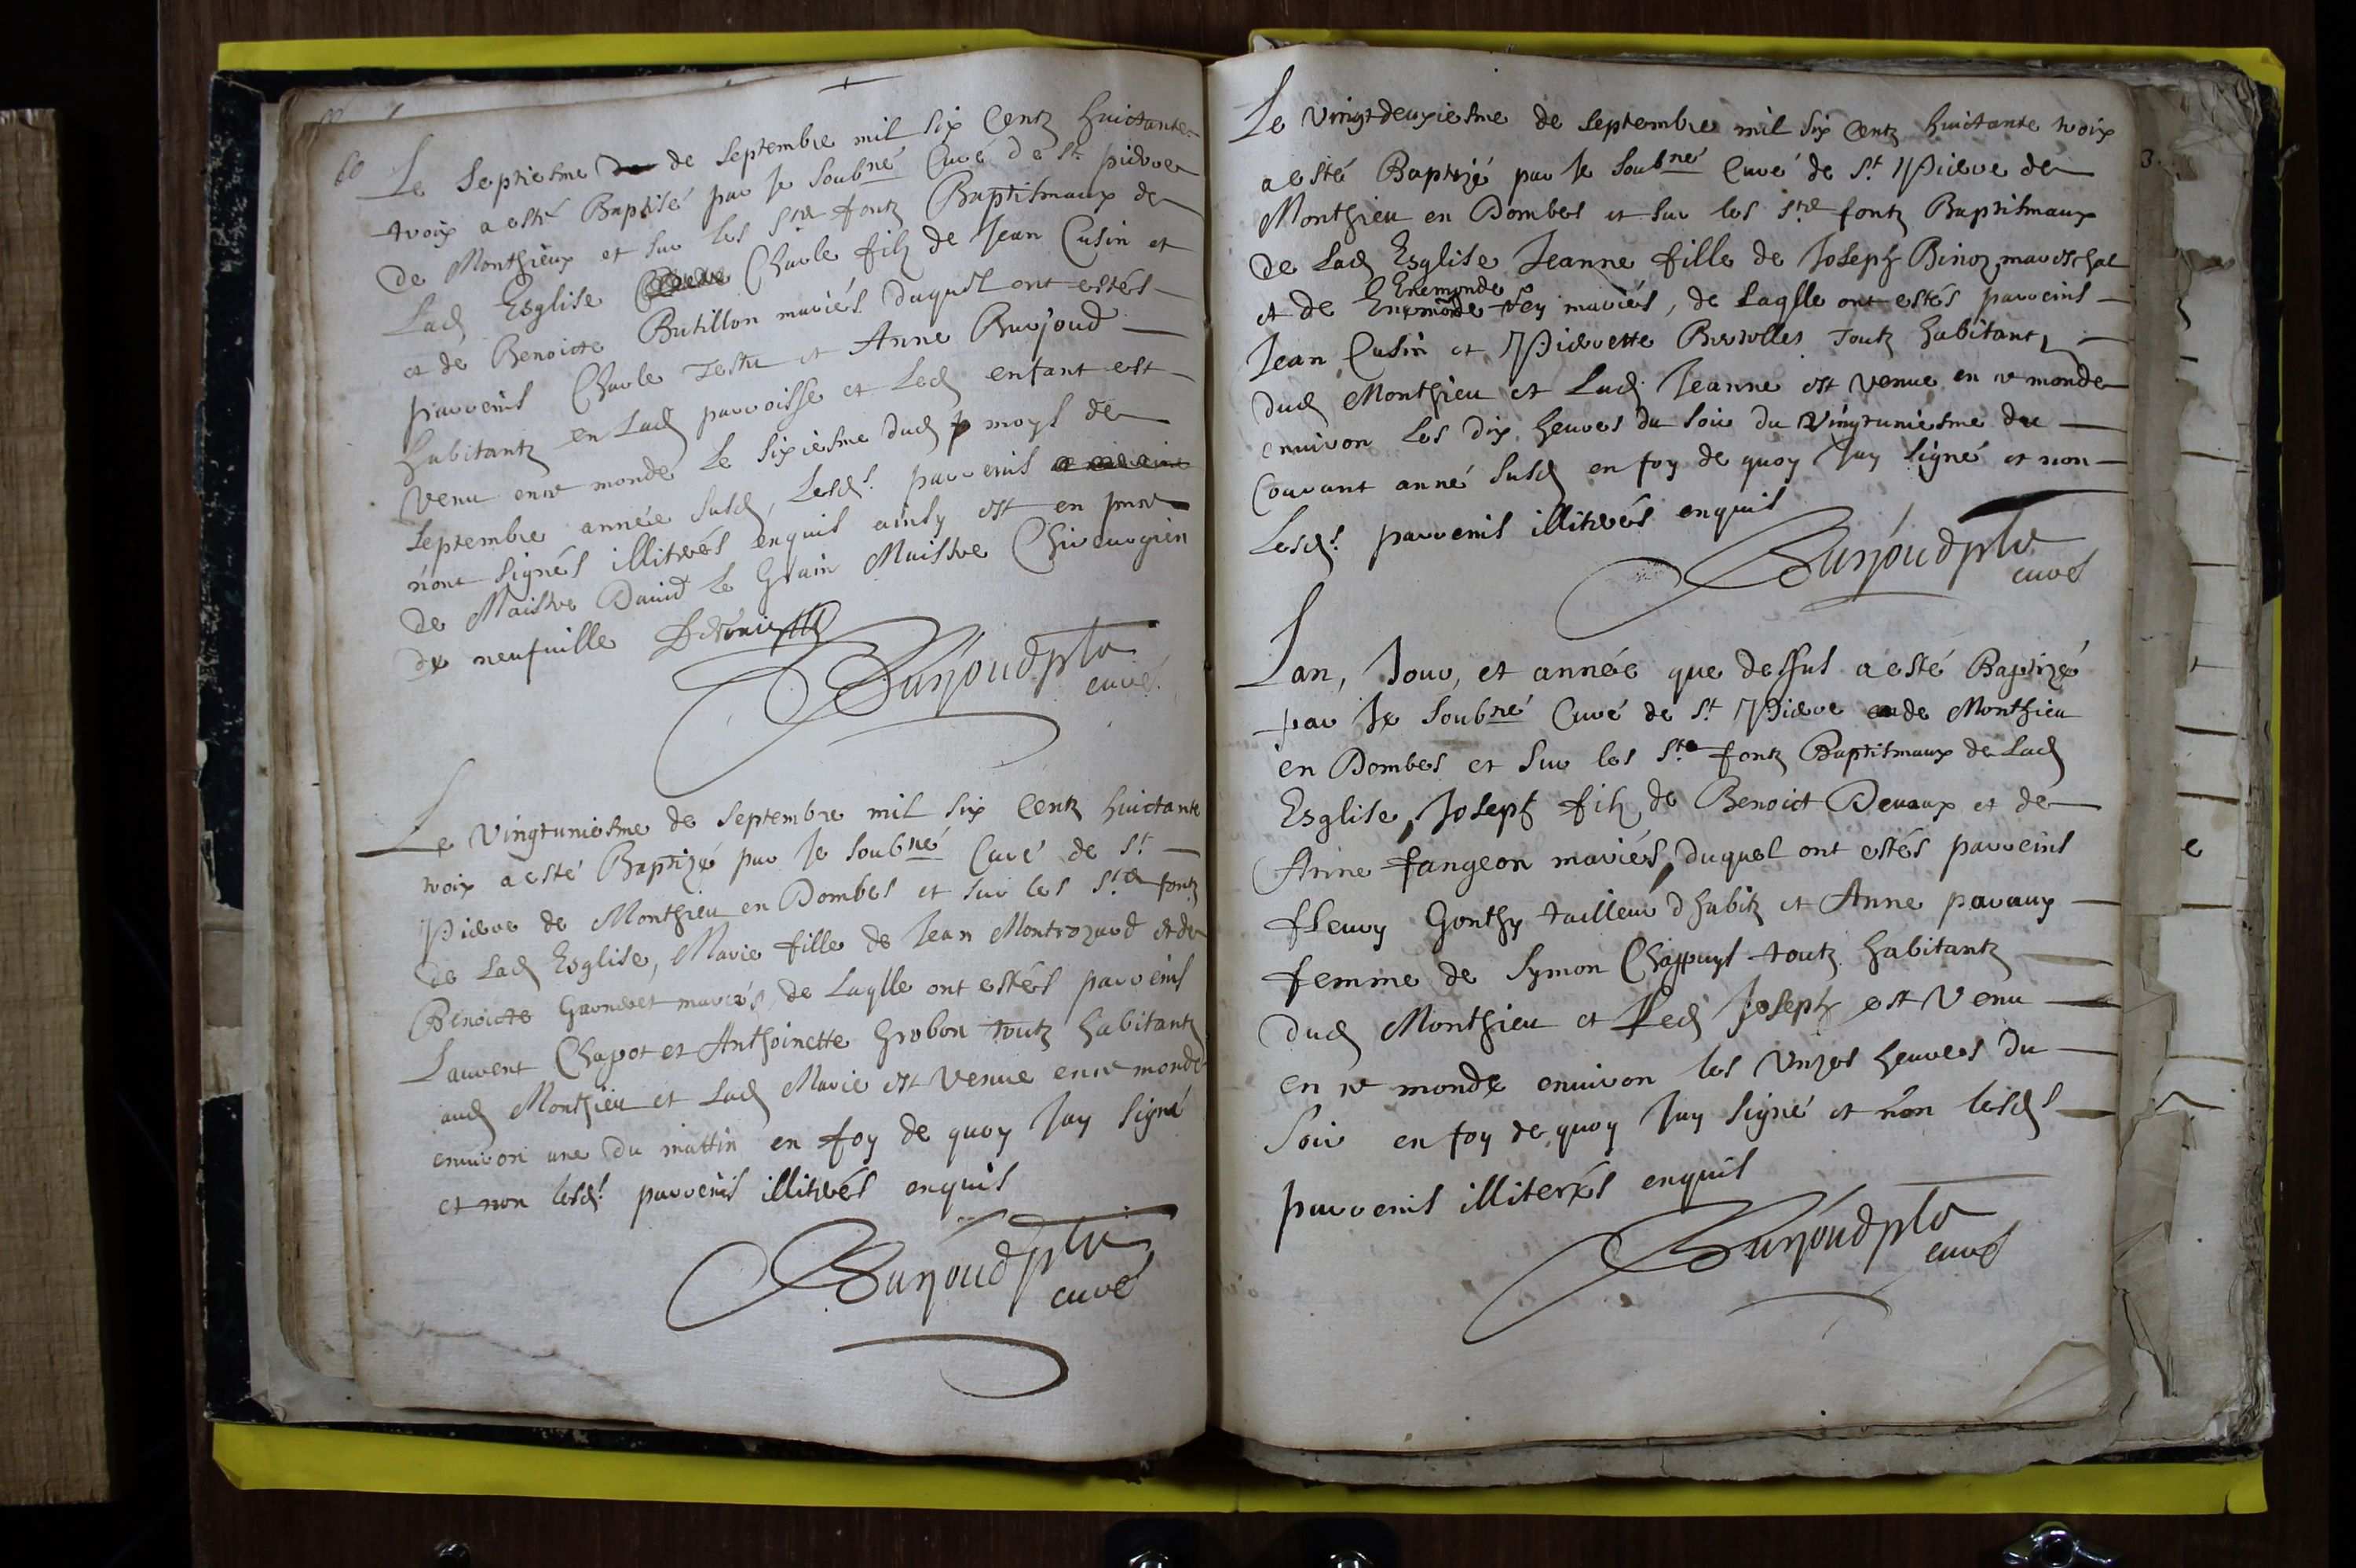 60
Le Septiesme de Septembre mil six Centz huictante
troix a esté Baptisé par Je Soubné Curé de St pierre
de Monthieux et sur les Sts fontz Baptismaux de
Lad Esglise Charle filz de Jean Cusin et
et de Benoicte Butillon mariés duquel ont estés
parreins Charle Testu et Anne Burjoud
habitantz en Lad parroisse et Led enfant est
venu en ce monde Le sixiesme dud moys de
Septembre année susd, Lesds. parreins
n'ont signés illiterés enquis ainsy est en pnce
de Maistre David Le Grain Maistre Chirurgien
de neufuille
Burjoud ptre
curé
Le Vingtuniesme de Septembre mil six Centz huictante
troix a esté Baptizé par Je soubné Curé de St
Pierre de Monthieu en Dombes et sur les Sts fontz
de Lad Esglise, Marie fille de Jean Montrozard et de
Benoicte mariés, de Laqlle ont estés parreins
Laurent Chapot et Anthoinette Grobon toutz habitantz
aud Monthieu et Lad Marie est venue en ce monde
enuiron une du mattin en foy de quoy Jay signé
et non lesds. parreins illiterés enquis
Burjoud ptre
curé
Le vingtdeuxiesme de septembre mil six Centz huictante troix
a esté Baptizé par Je soubné Curé de St Pierre de
Monthieu en Dombes et sur les Sts fontz Baptismaux
de Lad Esglise Jeanne fille de Joseph Binoz mareschal
Enemonde
et de Enemonde fey mariés, de Laqlle ont estés parreins
Jean Cusin et Pierrette Brerolles toutz habitantz
dud Monthieu et Lad Jeanne est venue en ce monde
enuiron les dix heures du soir du vingtuniesme du
Courant anné susd en foy de quoy Jay signé et non
Lesds. parreins illiterés enquis
Burjoud ptre
curé
Lan, Jour, et année que dessus a esté Baptizé
par Je soubné Curé de St Pierre de Monthieu
en Dombes et sur les Sts fontz Baptismaux de Lad
Esglise, Joseph filz de Benoict Devaux et de
Anne fangeon mariés, duquel ont estés parreins
fleury Gonthy tailleur d'habitz et Anne paraux
femme de Symon Chappuys toutz habitantz
dud Monthieu et Led Joseph est venu
en ce monde enuiron les unzes heures du
soir en foy de quoy Jay signé et non lesds
parreins illiterés enquis
Burjoud ptre
curé
3